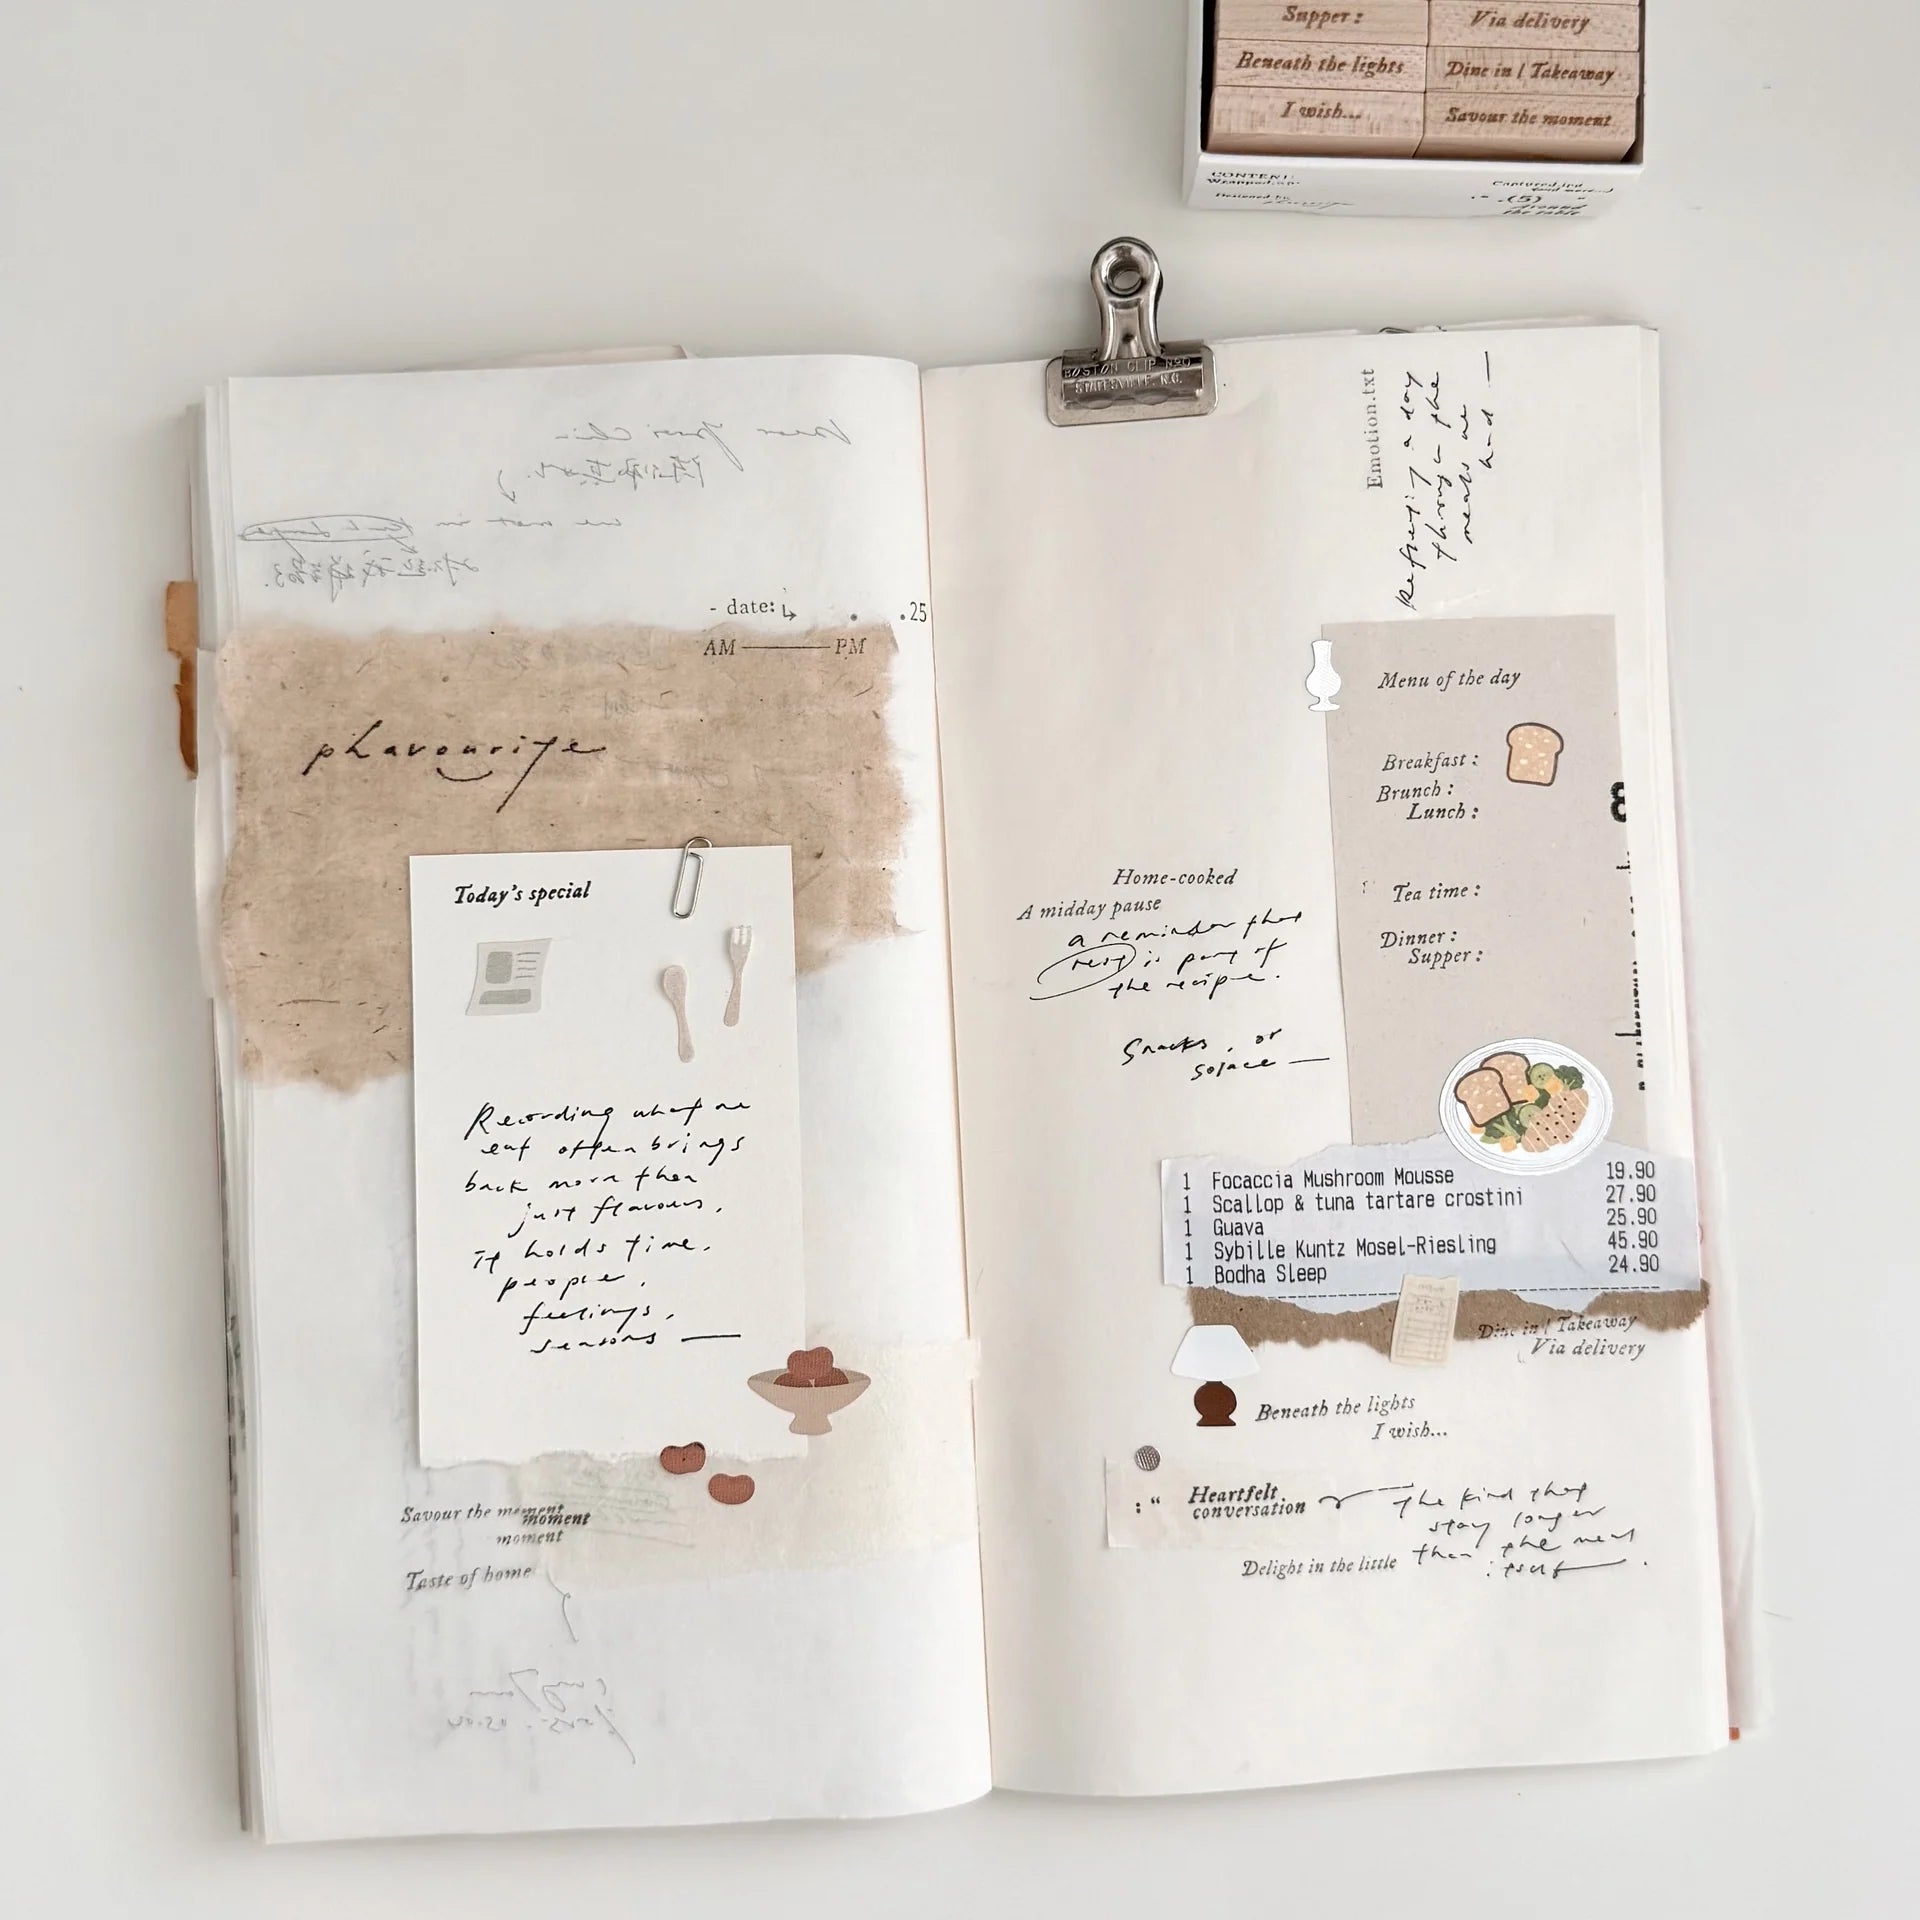 Supper :
Via delivery
Beneath the lights
Dine in | Takeaway
I wish...
Savour the moment
Designed by
(5)
around
the table
BOSTON CLIP Nº0
STATESVILLE, N.C.
- date:
.25
AM
PM
phavourite
Today's special
Recording what we
eat often brings
back more than
just flavours,
it holds time,
people,
feelings,
seasons —
Savour the moment
moment
moment
Taste of home
Emotion.txt
a day
through the
meals we
had —
Menu of the day
Breakfast :
Brunch :
Lunch :
Tea time :
Dinner :
Supper :
8
Home-cooked
A midday pause
a reminder that
rest is part of
the recipe.
Snacks, or
solace —
1 Focaccia Mushroom Mousse 19.90
1 Scallop & tuna tartare crostini 27.90
1 Guava 25.90
1 Sybille Kuntz Mosel-Riesling 45.90
1 Bodha Sleep 24.90
Dine in | Takeaway
Via delivery
Beneath the lights
I wish...
: “ Heartfelt
conversation
the kind that
stay longer
than the meal
itself.
Delight in the little